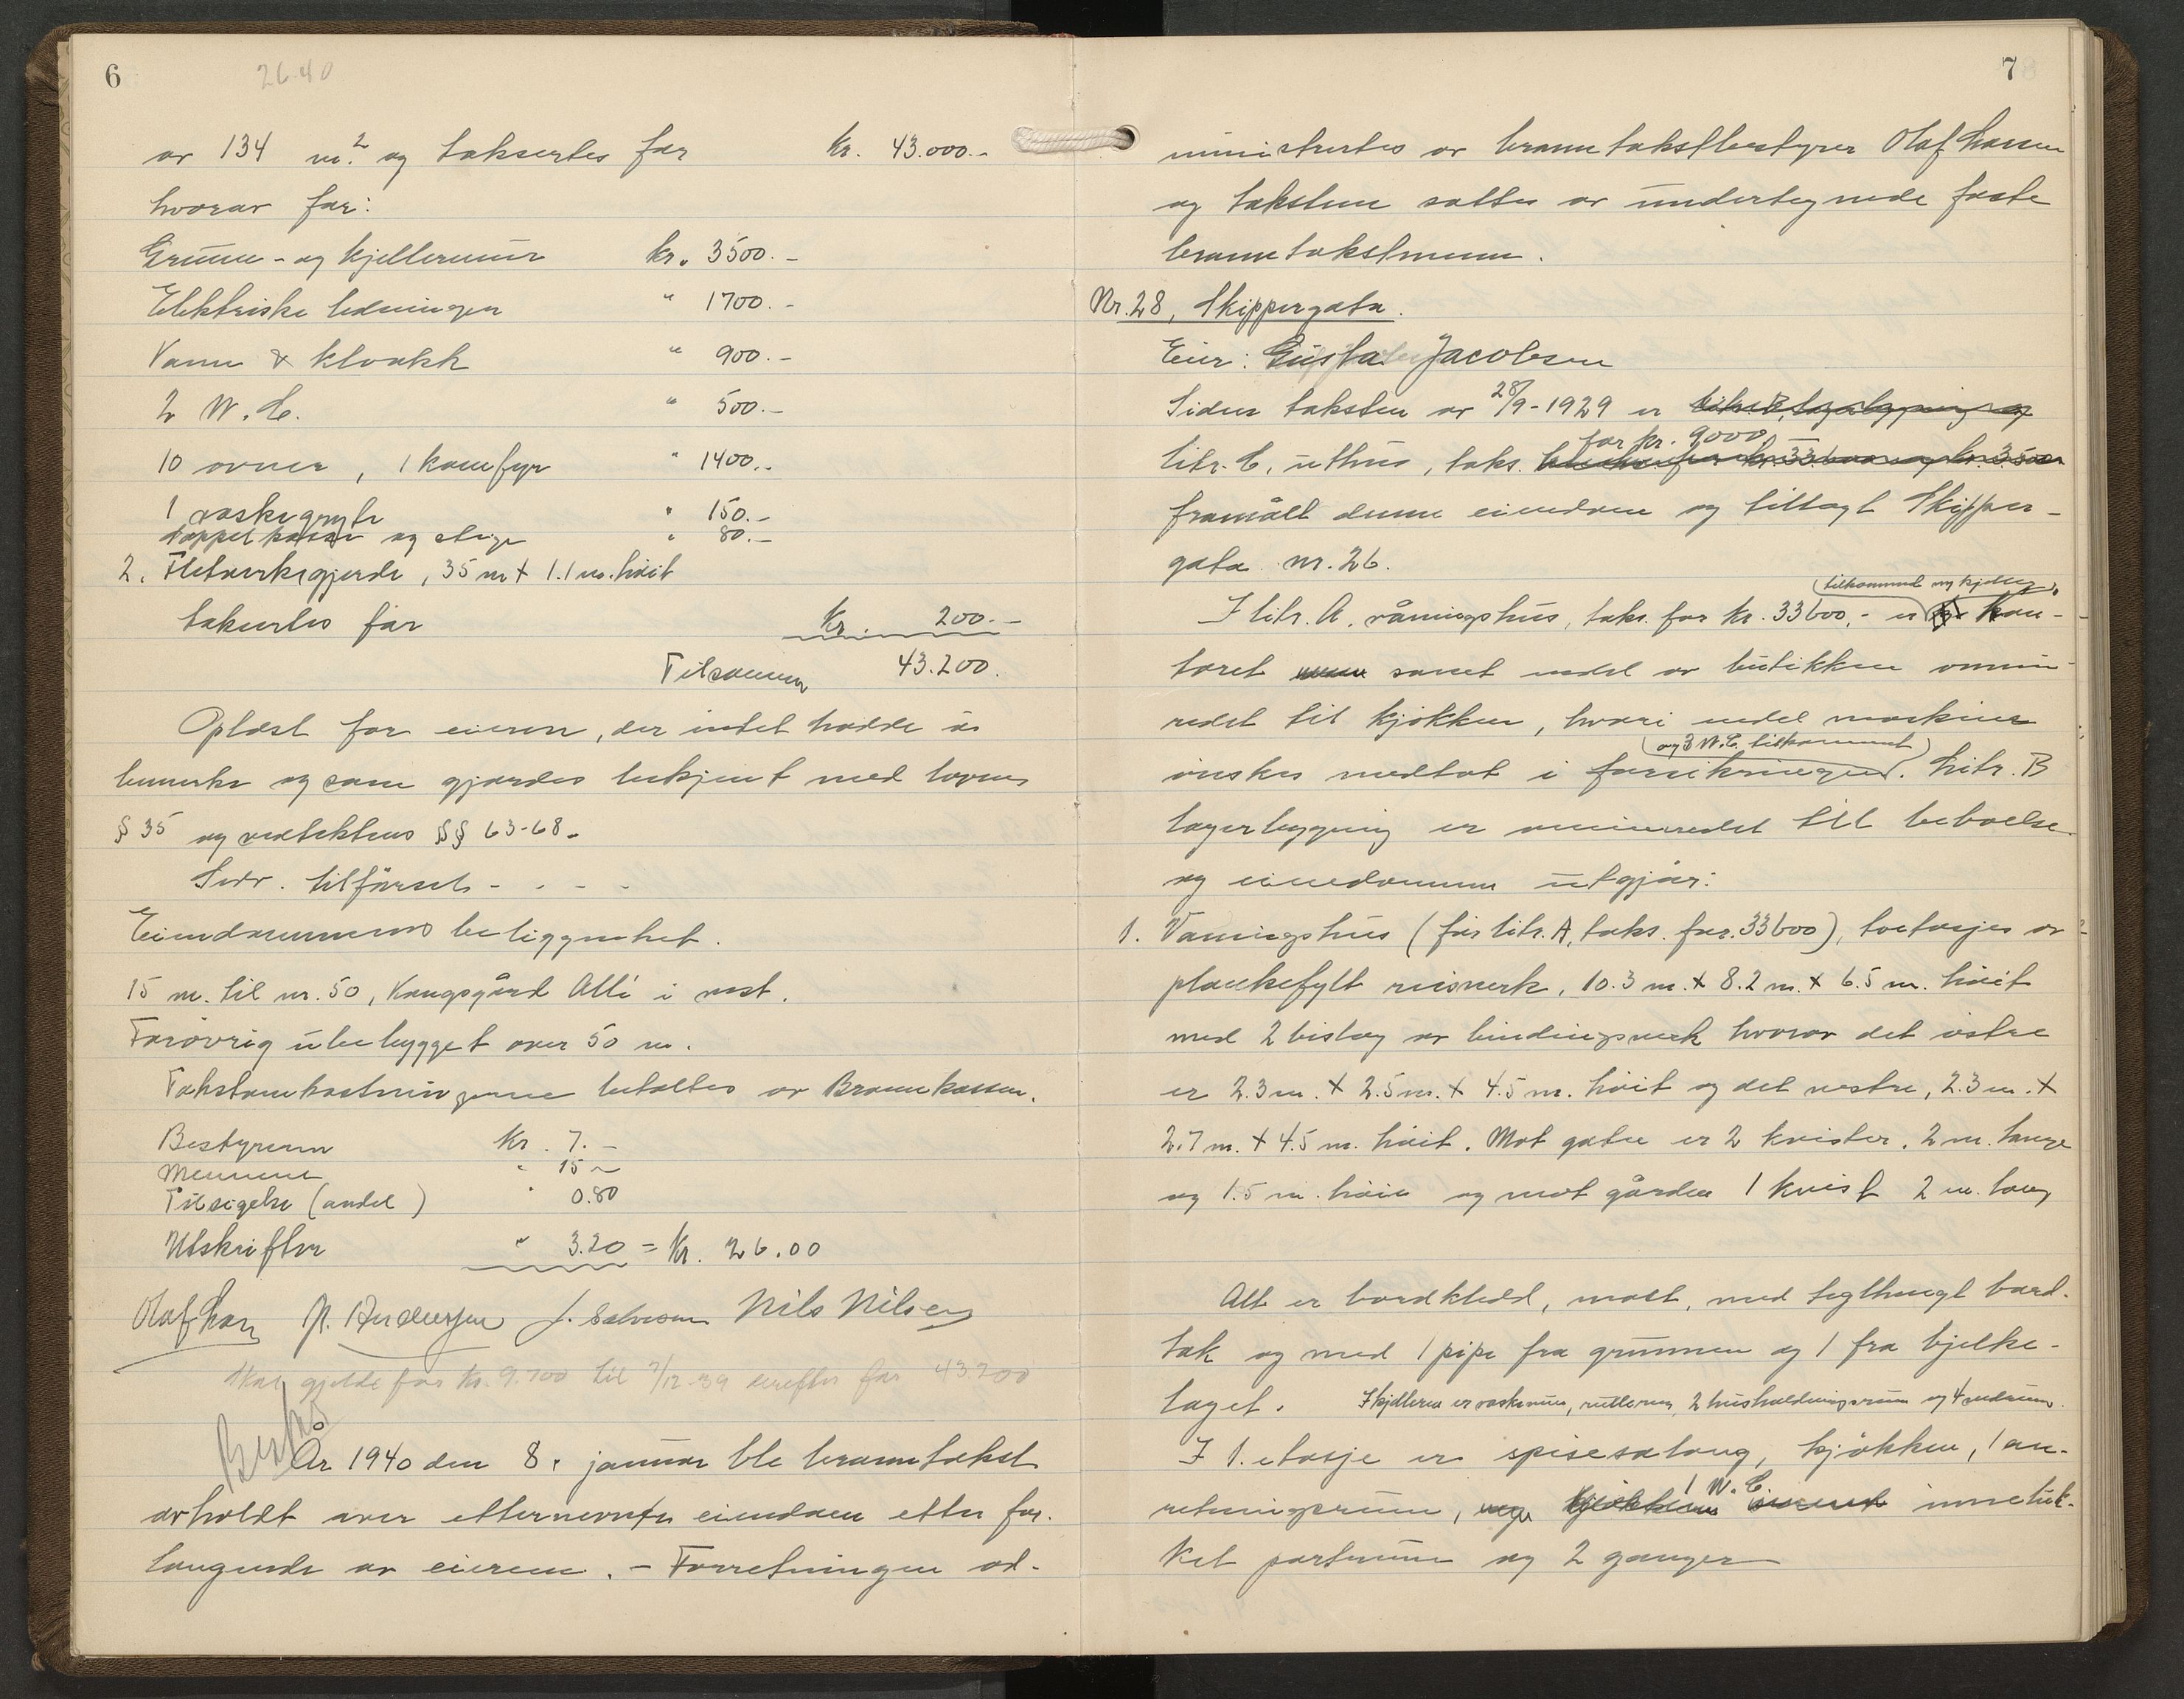 6
26.40
av 134 m.² og takseres for kr. 43.000.-
hvorav for:
Grunn- og kjellermur kr. 3500.-
Elektriske ledninger " 1700.-
Vann & kloakk " 900.-
2 W.C. " 500.-
10 ovner, 1 komfyr " 1400.-
1 vaskegryte " 150.-
og stige " 80.-
2. Fletverksgjerde, 35 m x 1.1 m. høit
takseres for kr. 200.-
Tilsammen 43.200.
Oplest for eieren, der intet hadde å
bemerke og som gjordes bekjent med lovens
§ 35 og vedtektens §§ 63-68.
Sedv. tilførsel - - - -
Eiendommens beliggenhet.
15 m. til nr. 50, Kongsgård Allé i vest.
Forøvrig ubebygget over 50 m.
Takstomkostningene betaltes av Brannkassen.
Bestyreren Kr. 7.-
Mennene " 15 -
Tilsigelse (andel) " 0.80
Utskrifter " 3.20 = Kr. 26.00
Olaf N. Andersen J. Salvesen Nils Nilsen
Skal gjelde for kr. 9.700 til 7/12-39 derefter for 43.200
År 1940 den 8. januar ble branntakst
avholdt over etternevnte eiendom etter for-
langende av eieren. - Forretningen ad-
7
ministrertes av branntakstbestyrer Olaf
og takstene sattes av undertegnede faste
branntakstmenn.
Nr. 28, Skippergata.
Eier: Gusta Jacobsen
Siden taksten av 28/9-1929 er litr. B, lagerbygning og
for kr. 9000,-
litr. C, uthus, taks. kr. 33.600 og kr. 3500
framålt denne eiendom og tillagt Skipper-
gata nr. 26.
tilkommet ny kjeller,
I litr. A, våningshus, taks. for kr. 33600,- er kon-
toret samt endel av butikken ominn-
redet til kjøkken, hvori endel maskiner
og 3 W.C. tilkommet
ønskes medtat i forsikringen. Litr. B
lagerbygning er ominnredet til beboelse
og eiendommen utgjør:
1. Våningshus (før litr. A, taks. for 33600), toetasjes av
plankefylt reisverk, 10.3 m. x 8.2 m. x 6.5 m. høit
med 2 bislag av bindingsverk hvorav det østre
er 2.3 m. x 2.5 m. x 4.5 m. høit og det vestre, 2.3 m. x
2.7 m. x 4.5 m. høit. Mot gaten er 2 kvister, 2 m. lange
og 1.5 m. høie og mot gården 1 kvist 2 m. lang
Alt er bordkledd, malt, med teglhengt bord-
tak og med 1 pipe fra grunnen og 1 fra bjelke-
laget. I kjelleren er vaskerum, rullerum, 2 husholdningsrum og 4 vedrum.
I 1. etasje er spisesalong, kjøkken, 1 an-
1 W.C.
retningsrum, kjøkken innebuk-
ket portrum og 2 ganger